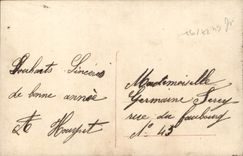 Souhaits Sincères
de bonne année
Mademoiselle
Germaine
rue du faubourg
N° 45